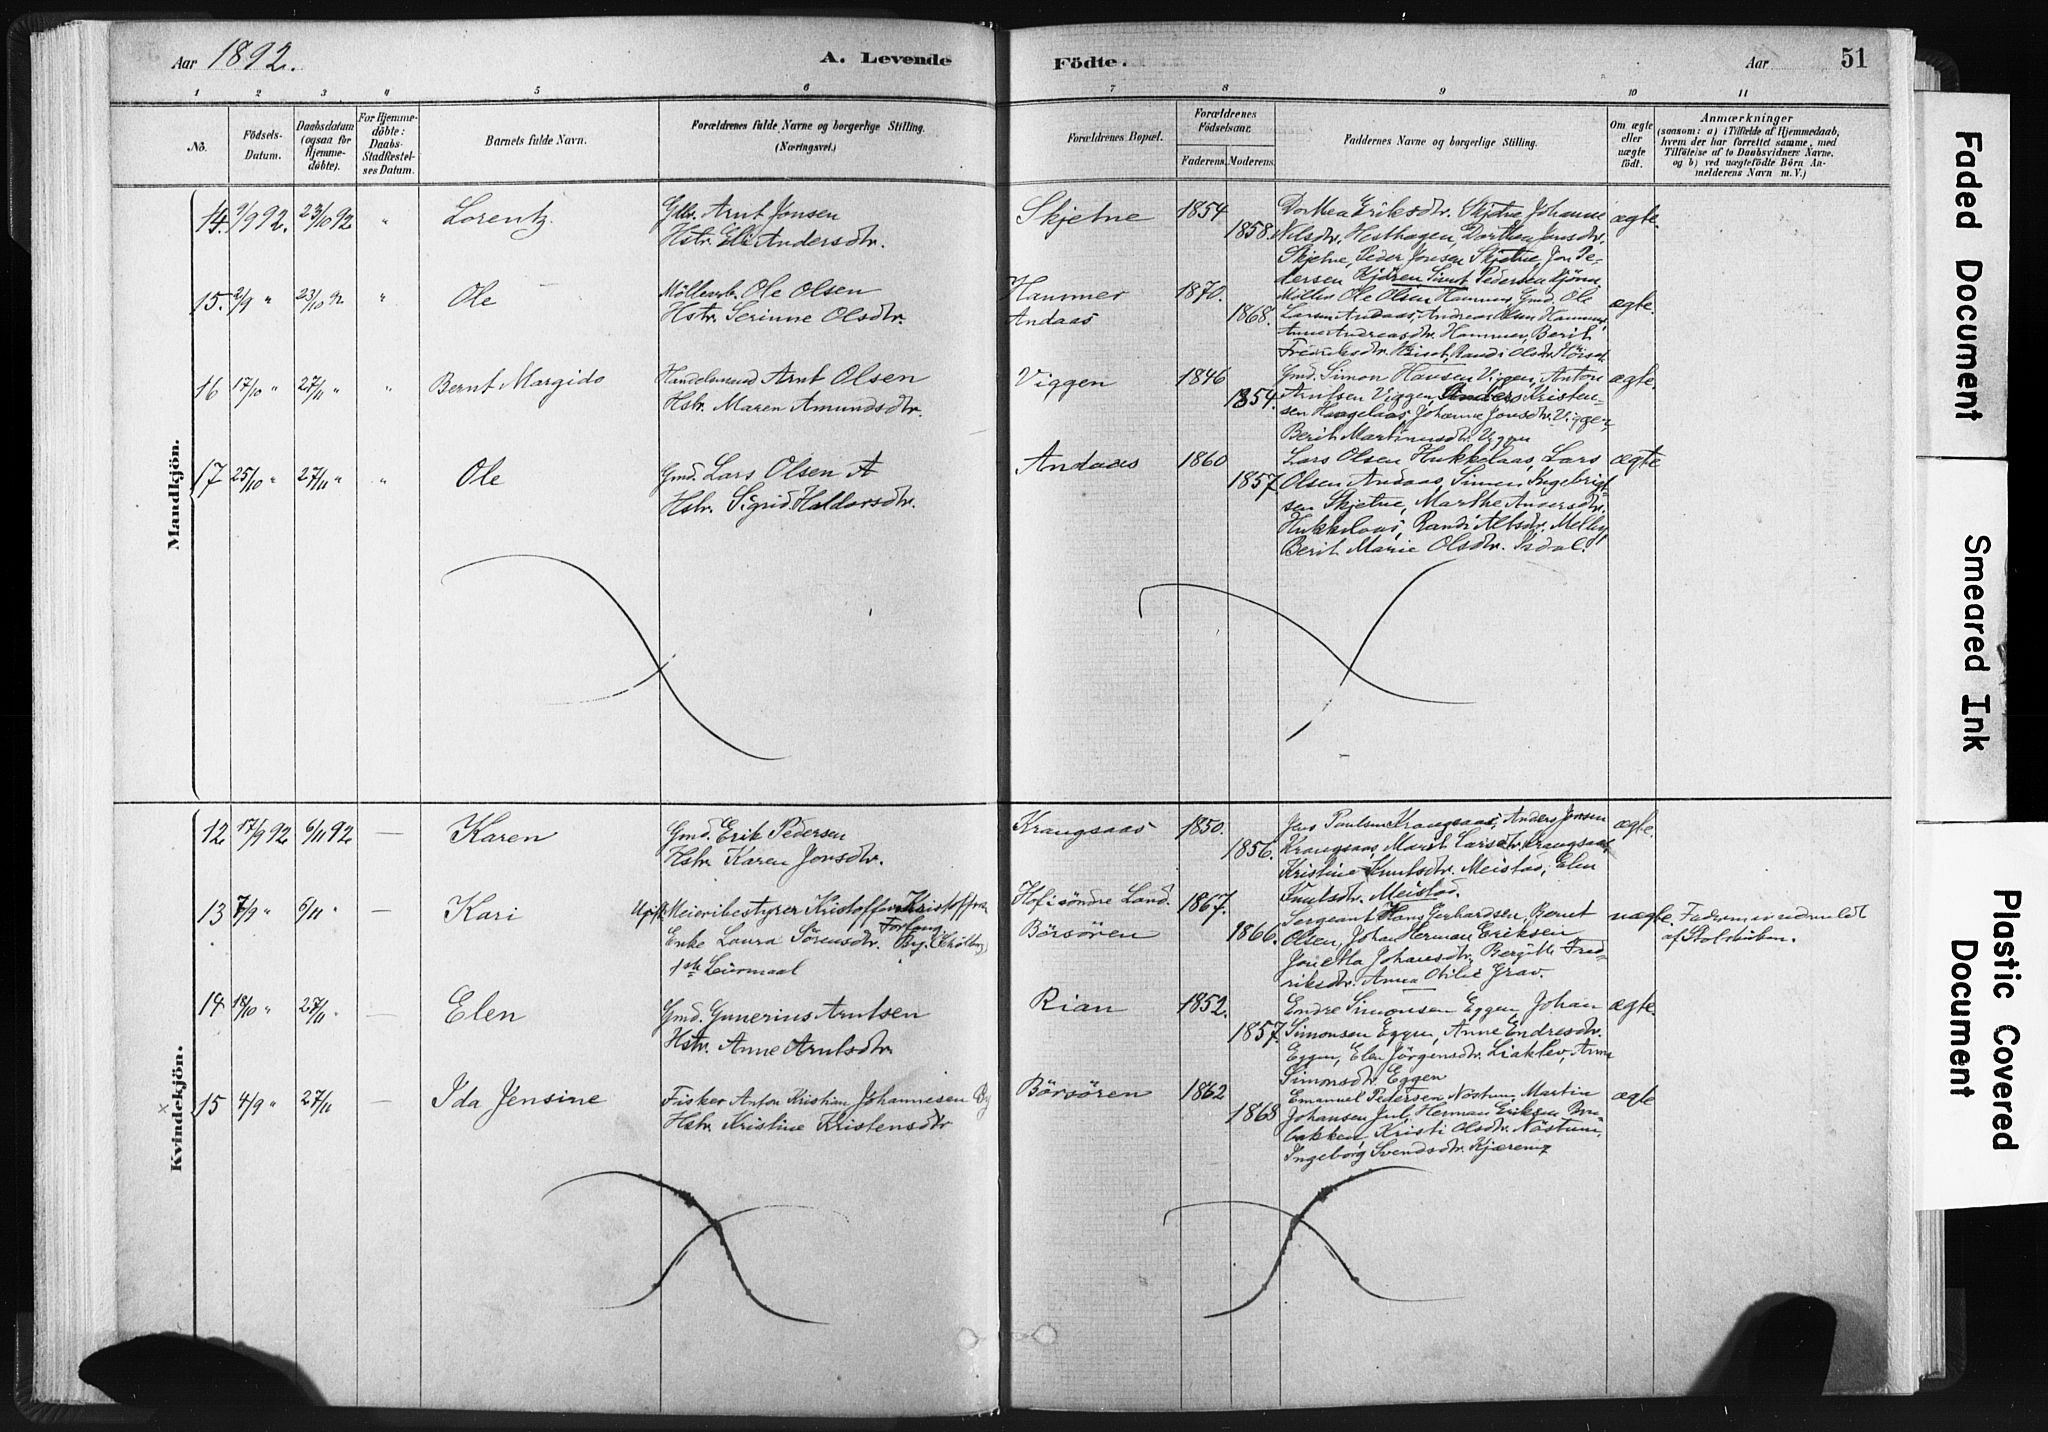 Aar 1892. A. Levende Födte. Aar 51
1 2 3 4 5 6 7 8 9 10 11
No.
Födsels-Datum.
Daabsdatum (ogsaa for Hjemme-döbte).
For Hjemme-döbte: Daabs-Stadfæstel-ses Datum.
Barnets fulde Navn.
Forældrenes fulde Navne og borgerlige Stilling.
(Næringsvei.)
Forældrenes Bopæl.
Forældrenes Födselsaar.
Faderens. Moderens.
Faddernes Navne og borgerlige Stilling.
Om ægte eller uægte födt.
Anmærkninger
(saasom: a) i Tilfælde af Hjemmedaab,
hvem der har forrettet samme, med
Tilföielse af to Daabsvidners Navne,
og b) ved uægtefödte Börn An-
melderens Navn m. V.)
Mandkjön.
14. 9/9 92. 23/10 92 " Lorentz. Gbr. Arnt Jonsen Skjetne 1854 Dorthea Eriksdtr. Skjetne, Johanne ægte.
Hstr. Eli Andersdtr. 1858. Nilsdtr. Hesthagen, Dorthea Jonsdtr.
Skjetne, Peder Jonsen Skjetne, Jon Pe-
dersen
15. 2/9 " 23/10 92 " Ole Möllerarb. Ole Olsen Hammer 1870. Möller Ole Olsen Hammer, Gmd. Ole ægte.
Hstr. Serinne Olsdtr. Andaas 1868. Larsen Andaas, Andreas Olsen Hammer,
Anne Andreasdtr. Hammer, Berit
Fredriksdtr. Randi Olsdtr.
16 17/10 " 27/11 " " Bernt Margido Handelsmand Arnt Olsen Viggen 1846 Gmd. Simon Hansen Viggen, Anton ægte.
Hstr. Maren Amundsdtr. 1854. Arntsen Viggen, Anders Kristen-
sen Haagelaas, Johanne Jonsdtr. Viggen
Berit Martinusdtr. Viggen
17 25/10 " 27/11 " " Ole Gmd. Lars Olsen A Andaas 1860 Lars Olsen Hukkelaas, Lars ægte
Hstr. Sigrid Haldorsdtr. 1857. Olsen Andaas, Simen Ingebrigt-
sen Skjetne, Marthe Andersdtr.
Hukkelaas, Randi Melby
Berit Marie Olsdtr. Isdal.
Kvindekjön.
12. 17/9 92. 6/11 92. — Karen Gmd. Erik Pedersen Krangsaas 1850. Jens Paulsen Krangsaas, Anders Jonsen ægte.
Hstr. Karen Jonsdtr. 1856. Krangsaas, Marit Larsdtr. Krangsaas,
Kristine Knutsdtr. Meistad, Elen
Knutsdtr. Meistad.
13 7/9 " 6/11 " — Kari Ugift Meieribestyrer Kristoffer Kristoffersen Hof i söndre Land. 1867. Sergeant Hans Gerhardsen, Bernt uægte. Faderen er udmeldt
Enke Laura Sörensdtr. Börsören 1866. Olsen, Johan Herman Eriksen af Statskirken.
1ste Leiermaal Johansdtr. Bergitte Fred-
riksdtr. Anna Otilie Grav.
14 18/10 " 27/11 " — Elen Gmd. Gunerius Arntsen Rian 1852. Endre Simonsen Eggen, Johan ægte.
Hstr. Anne Arntsdtr. 1857. Simonsen Eggen, Anne Endresdtr.
Eggen, Elen Jörgensdtr. Liaklev, Anne
Simonsdtr. Eggen
× 15 4/9 " 27/11 — Ida Jensine Fisker Anton Kristian Johannesen By Börsören 1862 Emanuel Petersen Nöstum, Martin ægte
Hstr. Kristine Kristensdtr 1868 Johansen Jul, Herman Eriksen Bru-
bakken, Kristi Olsdtr. Nöstum,
Ingeborg Svendsdtr. Kjæreng
Faded Document
Smeared Ink
Plastic Covered
Document